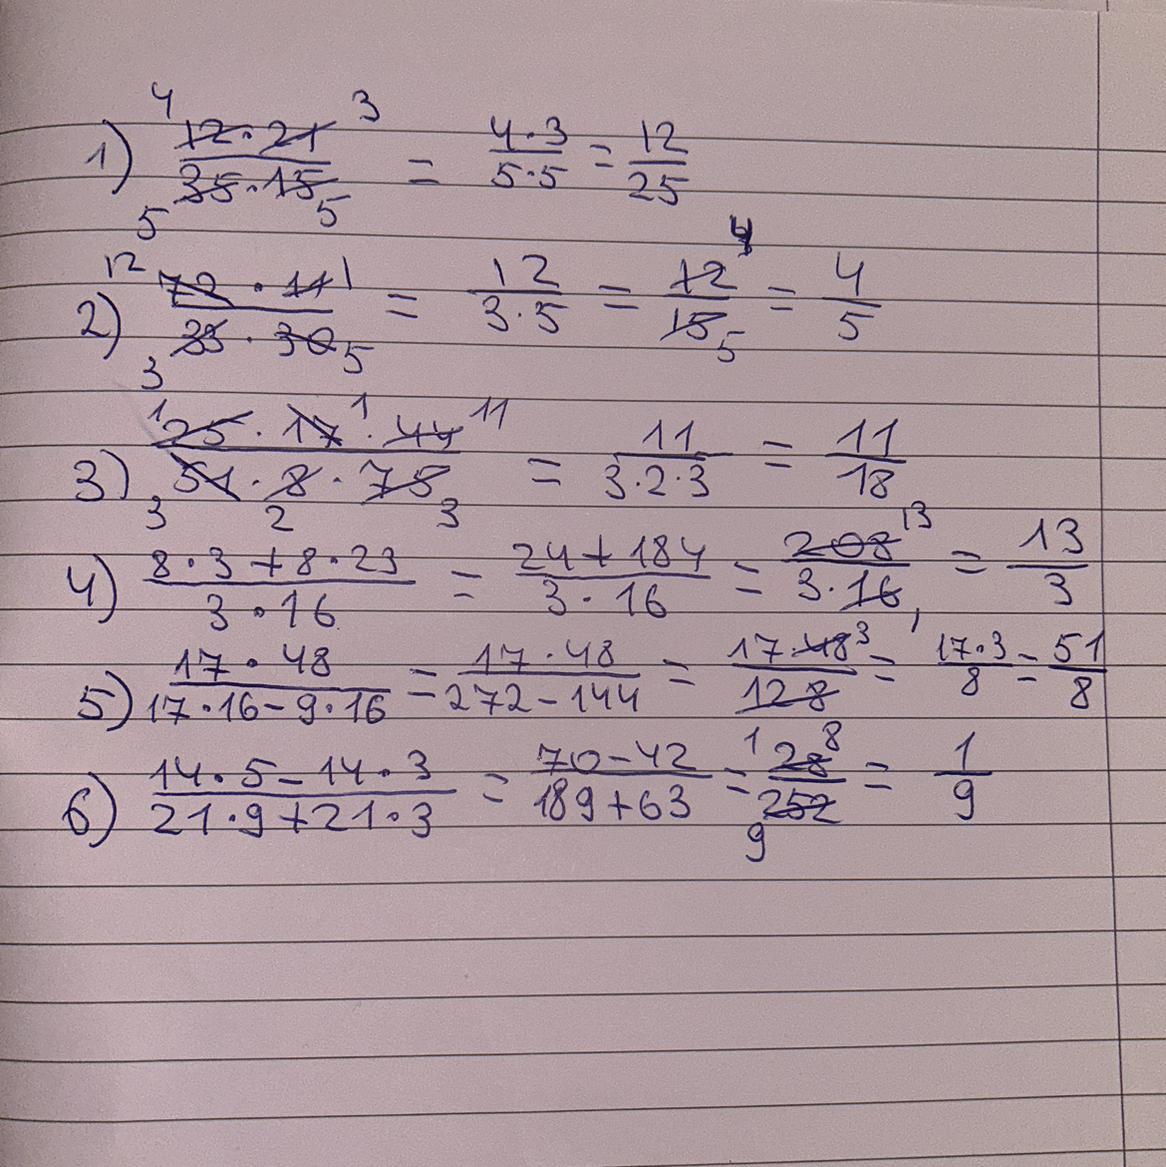 1) 4 12·21 3 / 5 35·15 5 = 4·3 / 5·5 = 12 / 25
2) 12 72·11 1 / 3 33·30 5 = 12 / 3·5 = 12 4 / 15 5 = 4 / 5
3) 1 25·17 1·44 11 / 3 51·8 2·75 3 = 11 / 3·2·3 = 11 / 18
4) 8·3+8·23 / 3·16 = 24+184 / 3·16 = 208 13 / 3·16 1 = 13 / 3
5) 17·48 / 17·16-9·16 = 17·48 / 272-144 = 17·48 3 / 128 = 17·3 / 8 = 51 / 8
6) 14·5-14·3 / 21·9+21·3 = 70-42 / 189+63 = 1 28 / 9 252 = 1 / 9